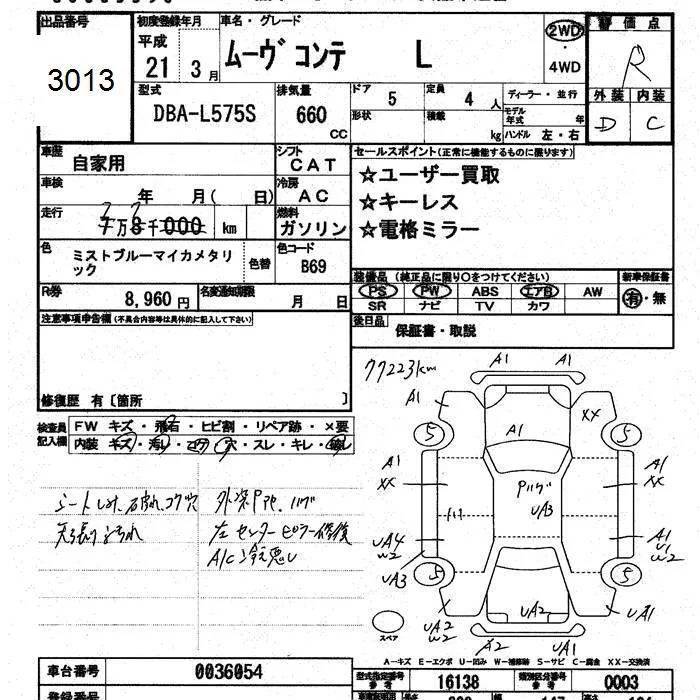 出品番号
3013
初度登録年月
平成
21 3月
車名・グレード
ムーヴ コンテ L
2WD
4WD
評価点
R
外装 内装
D C
型式
DBA-L575S
排気量
660
CC
ドア
5
定員
4人
形状
積載
kg
ディーラー・並行
モデル
年式 年
ハンドル 左・右
車歴
自家用
シフト
CAT
車検
年 月( 日)
冷房
AC
走行
7万 千000 km
燃料
ガソリン
セールスポイント(正常に機能するものに限ります)
☆ユーザー買取
☆キーレス
☆電格ミラー
色
ミストブルーマイカメタリ
ック
色替
色コード
B69
装備品 (純正品に限り○をつけてください)
PS PW ABS エアB AW
SR ナビ TV カワ
新車保証書
有・無
R券
8,960円
名変通知期限
月 日
後日品
保証書・取説
注意事項申告欄(不具合内容等は具体的に記入して下さい)
修復歴 有〔箇所 〕
検査員
記入欄
FW キズ・飛石・ヒビ割・リペア跡・×要
内装 キズ・汚レ・コゲ・穴・スレ・キレ・破レ
シートしみ、破れ、コゲ穴
天張りよごれ
左センターピラー修復
A/C冷え悪し
77223km
A1 A1
A1
XX
5 5
A1
A1
XX
A1
XX
Pハゲ
UA3
UA4
W2
A1
U1
W2
UA3
5 5
UA2
W2
UA2
UA1
スペア
A2
UA1
A-キズ E-エクボ U-凹み W-補修跡 S-サビ C-腐食 XX-交換済
車台番号
0036054
型式指定番号
参考
16138
類別区分番号
参考
0003
登録番号